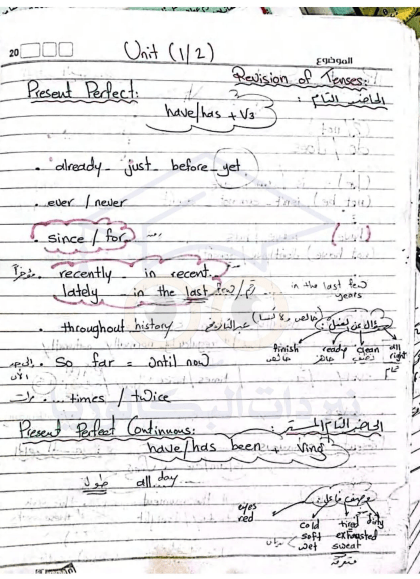 20
Unit (1/2)
الموضوع
Revision of Tenses:
Present Perfect:
الحاضر التام :
have/has + V3
. already - just - before - yet
. ever / never
. since / for
. recently - in recent
lately - in the last few/رقم ... in the last few years
. throughout history عبر التاريخ
finish ready clean all right
. So far = Until now
الآن
. ... times / twice
Present Perfect Continuous:
الحاضر التام المستمر :
have/has been + Ving
all day طول
eyes red
cold tired dirty
soft exhausted
wet sweat